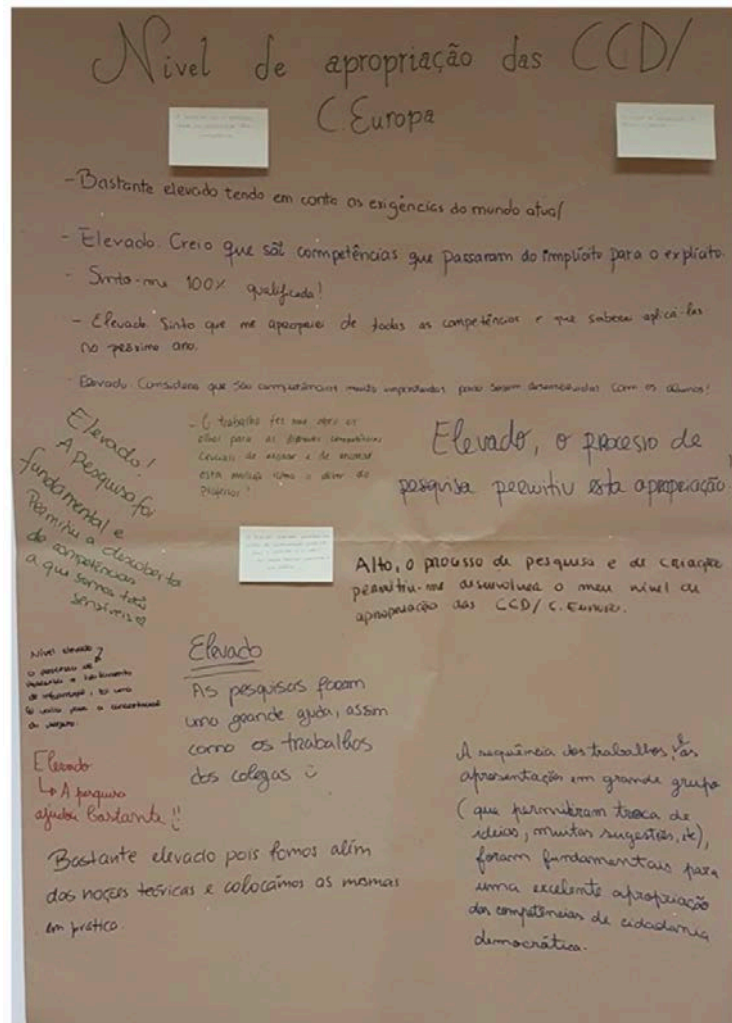 Nível de apropriação das CCD/
C. Europa
- Bastante elevado tendo em conta as exigências do mundo atual
- Elevado. Creio que são competências que passaram do implícito para o explícito.
- Sinto-me 100% qualificada!
- Elevado. Sinto que me apropriei de todas as competências e que saberei aplicá-las
no próximo ano.
- Elevado. Considero que são competências muito importantes para serem desenvolvidas com os alunos!
Elevado!
A pesquisa foi
fundamental e
Permitiu a descoberta
de competências
a que somos tão
sensíveis
- O trabalho fez-me abrir os
olhos para as
de ensinar e de
esta
Elevado, o processo de
pesquisa permitiu esta apropriação!
Alto, o processo de pesquisa e de criação
permitiu-me desenvolver o meu nível de
apropriação das CCD/ C. Europa.
Nível elevado
o processo de
de informação, foi uma
para a
Elevado
As pesquisas foram
uma grande ajuda, assim
como os trabalhos
dos colegas
Elevado
↳ A pesquisa
ajudou Bastante!!
Bastante elevado pois fomos além
das noções teóricas e colocámos as mesmas
em prática.
A sequência dos trabalhos, e as
apresentações em grande grupo
(que permitiram troca de
ideias, muitas sugestões, etc),
foram fundamentais para
uma excelente apropriação
das competências de cidadania
democrática.